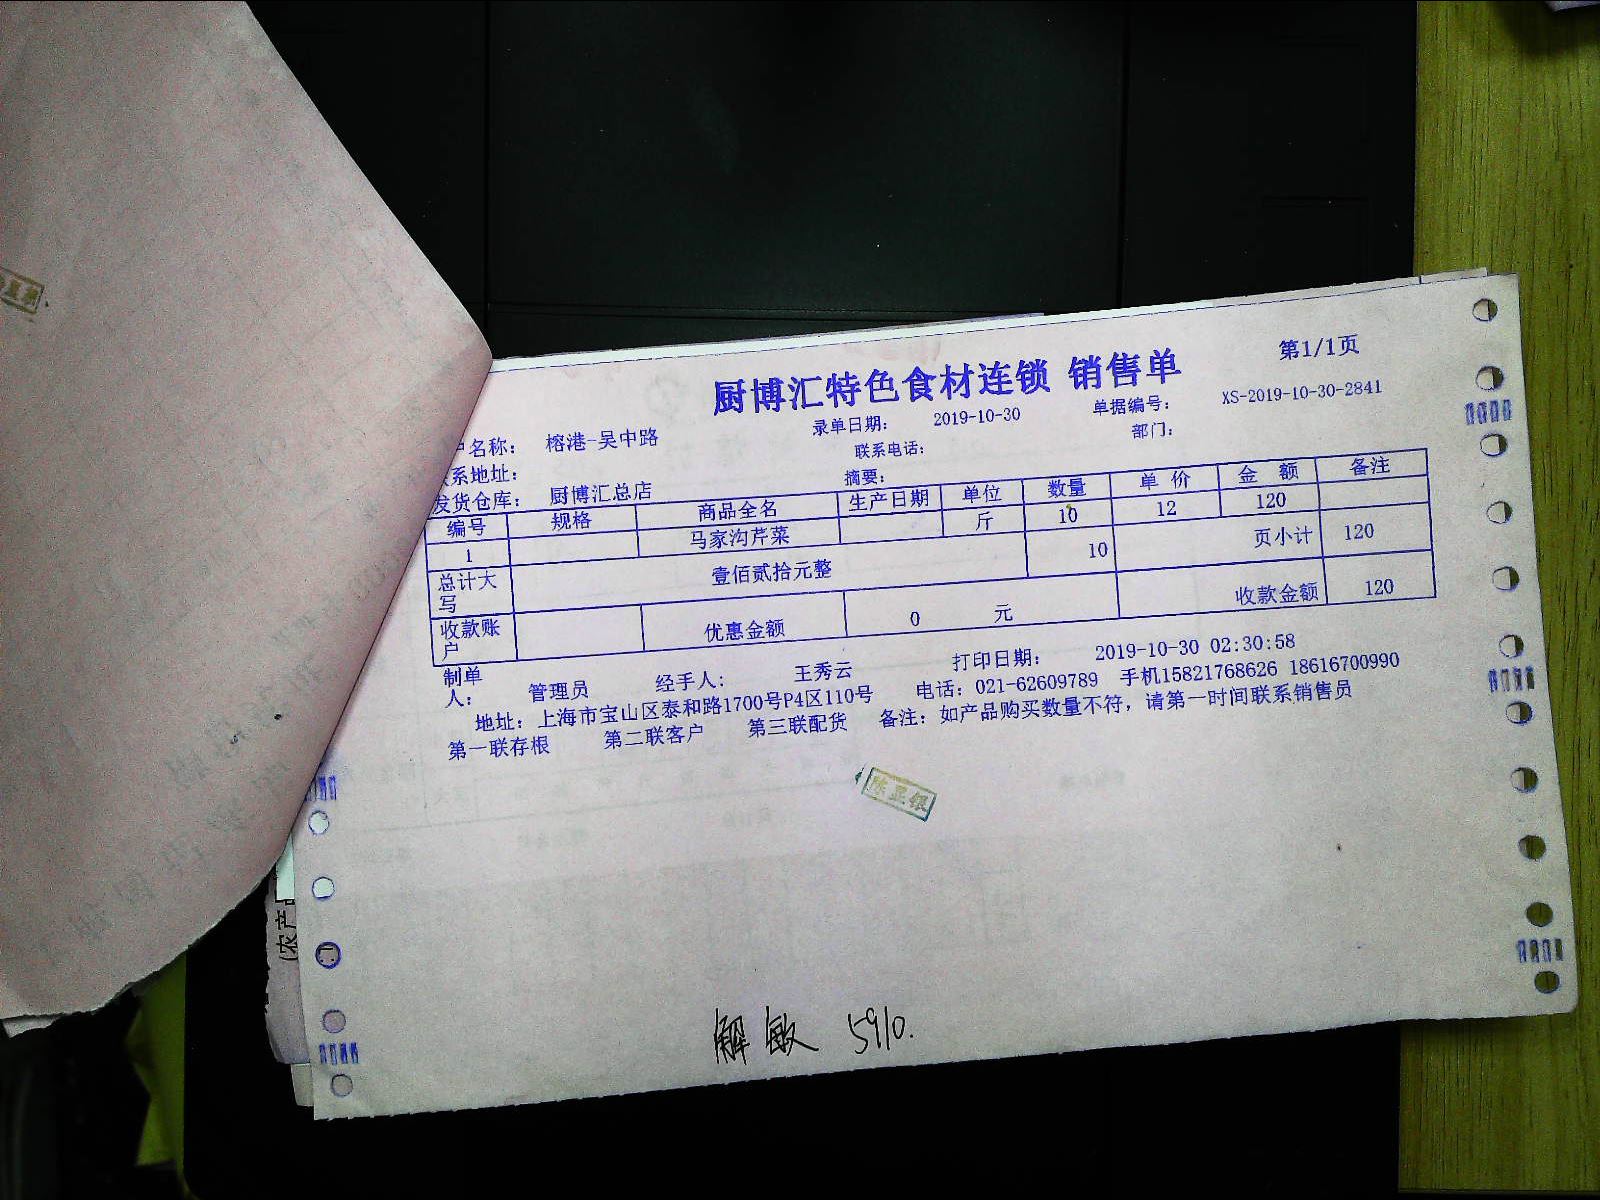 厨博汇特色食材连锁 销售单 第1/1页
户名称： 榕港-吴中路 录单日期： 2019-10-30 单据编号： XS-2019-10-30-2841
系地址： 联系电话： 部门：
发货仓库： 厨博汇总店 摘要：
编号 规格 商品全名 生产日期 单位 数量 单 价 金 额 备注
1 马家沟芹菜 斤 10 12 120
总计大写 壹佰贰拾元整 10 页小计 120
收款账户 优惠金额 0 元 收款金额 120
制单人： 管理员 经手人： 王秀云 打印日期： 2019-10-30 02:30:58
地址：上海市宝山区泰和路1700号P4区110号 电话：021-62609789 手机15821768626 18616700990
第一联存根 第二联客户 第三联配货 备注：如产品购买数量不符，请第一时间联系销售员
陈亚银
(农产品
解敏 5910.